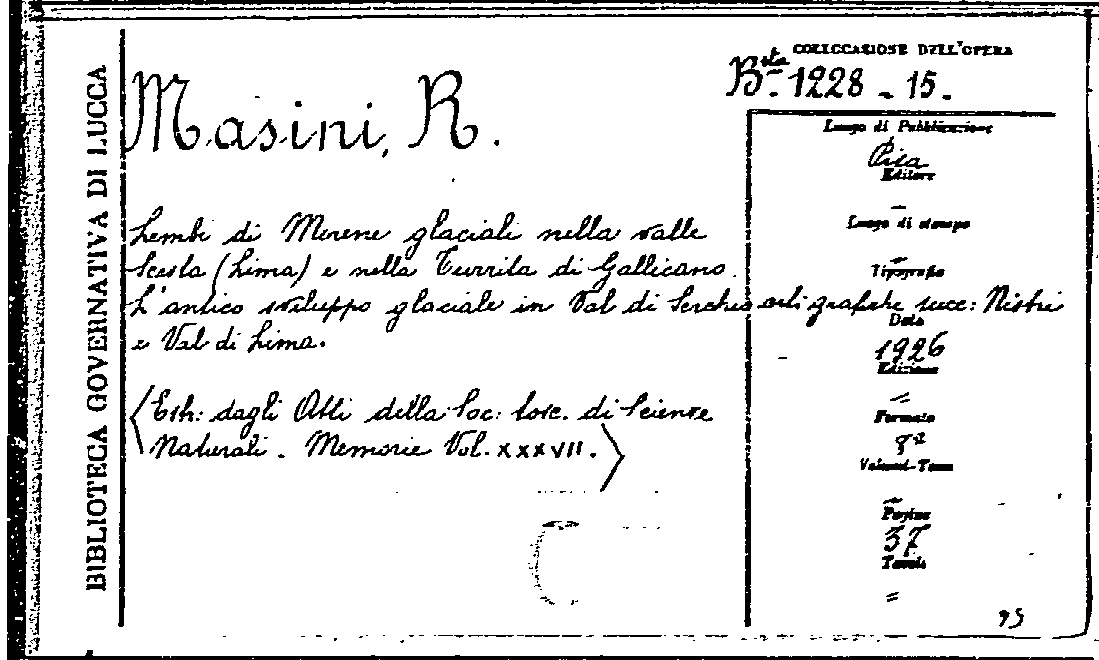 BIBLIOTECA GOVERNATIVA DI LUCCA
COLLOCAZIONE DELL'OPERA
Bta 1228 - 15.
Masini, R.
Luogo di Pubblicazione
Pisa
Editore
—
Luogo di stampa
—
Tipografia
arti grafiche succ: Nistri
Data
1926
Edizione
=
Formato
8º
Volumi-Tomo
—
Pagine
37
Tavole
=
Lembi di Morene glaciali nella valle
Scesta (Lima) e nella Turrita di Gallicano.
L'antico sviluppo glaciale in Val di Serchio
e Val di Lima.
(Estr: dagli Atti della Soc: tosc. di Scienze
Naturali. Memorie Vol. XXXVII.)
95